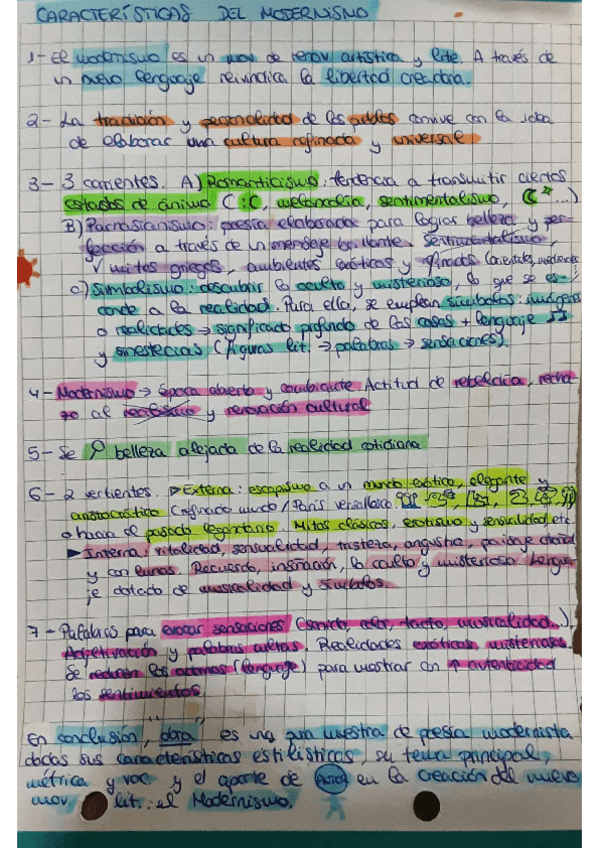 CARACTERÍSTICAS DEL MODERNISMO
1- El modernismo es un mov. de renov. artística y lite. A través de
un nuevo lenguaje reivindica la libertad creadora.
2- La tradición y personalidad de los pueblos convive con la idea
de elaborar una cultura refinada y universal
3- 3 corrientes. A) Romanticismo: tendencia a transmitir ciertos
estados de ánimo ( :C, melancolía, sentimentalismo, ...)
B) Parnasianismo: poesía elaborada para lograr belleza y per-
fección a través de un mensaje brillante.
mitos griegos, ambientes exóticos y refinados (orientales,
c) Simbolismo: descubrir lo oculto y misterioso, lo que se es-
conde a la realidad. Para ella, se emplean símbolos: imágenes
o realidades → significado profundo de las cosas + lenguaje
y sinestecias (figuras lit. → palabras → sensaciones).
4- Modernismo → época abierta y cambiante Actitud de rebeldía, recha
zo al y renovación cultural
5- Se belleza alejada de la realidad cotidiana
6- 2 vertientes. ▶ Externa: escapismo a un mundo exótico, elegante y
aristocrático (refinado mundo / París versallesco
o hacia el pasado legendario. Mitos clásicos, erotismo y sensualidad, etc.
▶ Interna: vitalidad, sensualidad, tristeza, angustia, paisaje otoñal
y con lunas. Recuerdo, insinuación, lo oculto y misterioso. Lengua
je dotado de musicalidad y símbolos.
7- Palabras para evocar sensaciones (sonido, olor, tacto, musicalidad...),
Adjetivación y palabras cultas. Realidades exóticas, misteriosas.
Se los (lenguaje) para mostrar con ↑ autenticidad
los sentimientos
En conclusión, "obra" es una gran muestra de poesía modernista
dadas sus características estilísticas, su tema principal,
métrica y voc. y el aporte de autor en la creación del nuevo
mov. lit.: el Modernismo.